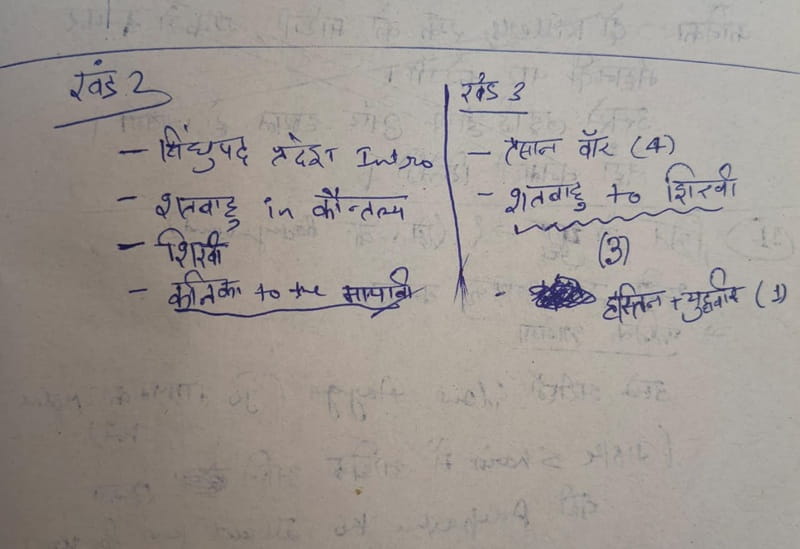 खंड 2
- सिंधुपद प्रदेश Intro
- शतबाहु in कौन्तल्य
- शिखी
- कनिका to the मायावी
खंड 3
- वॉर (4)
- शतबाहु to शिखी
(3)
- हस्तिन + युद्धवीर (1)